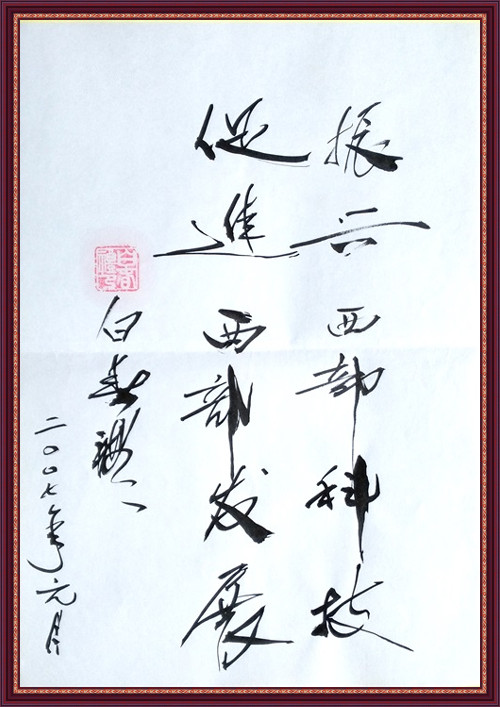 振兴西部科技
促進西部发展
白春禮
二〇〇七年元月